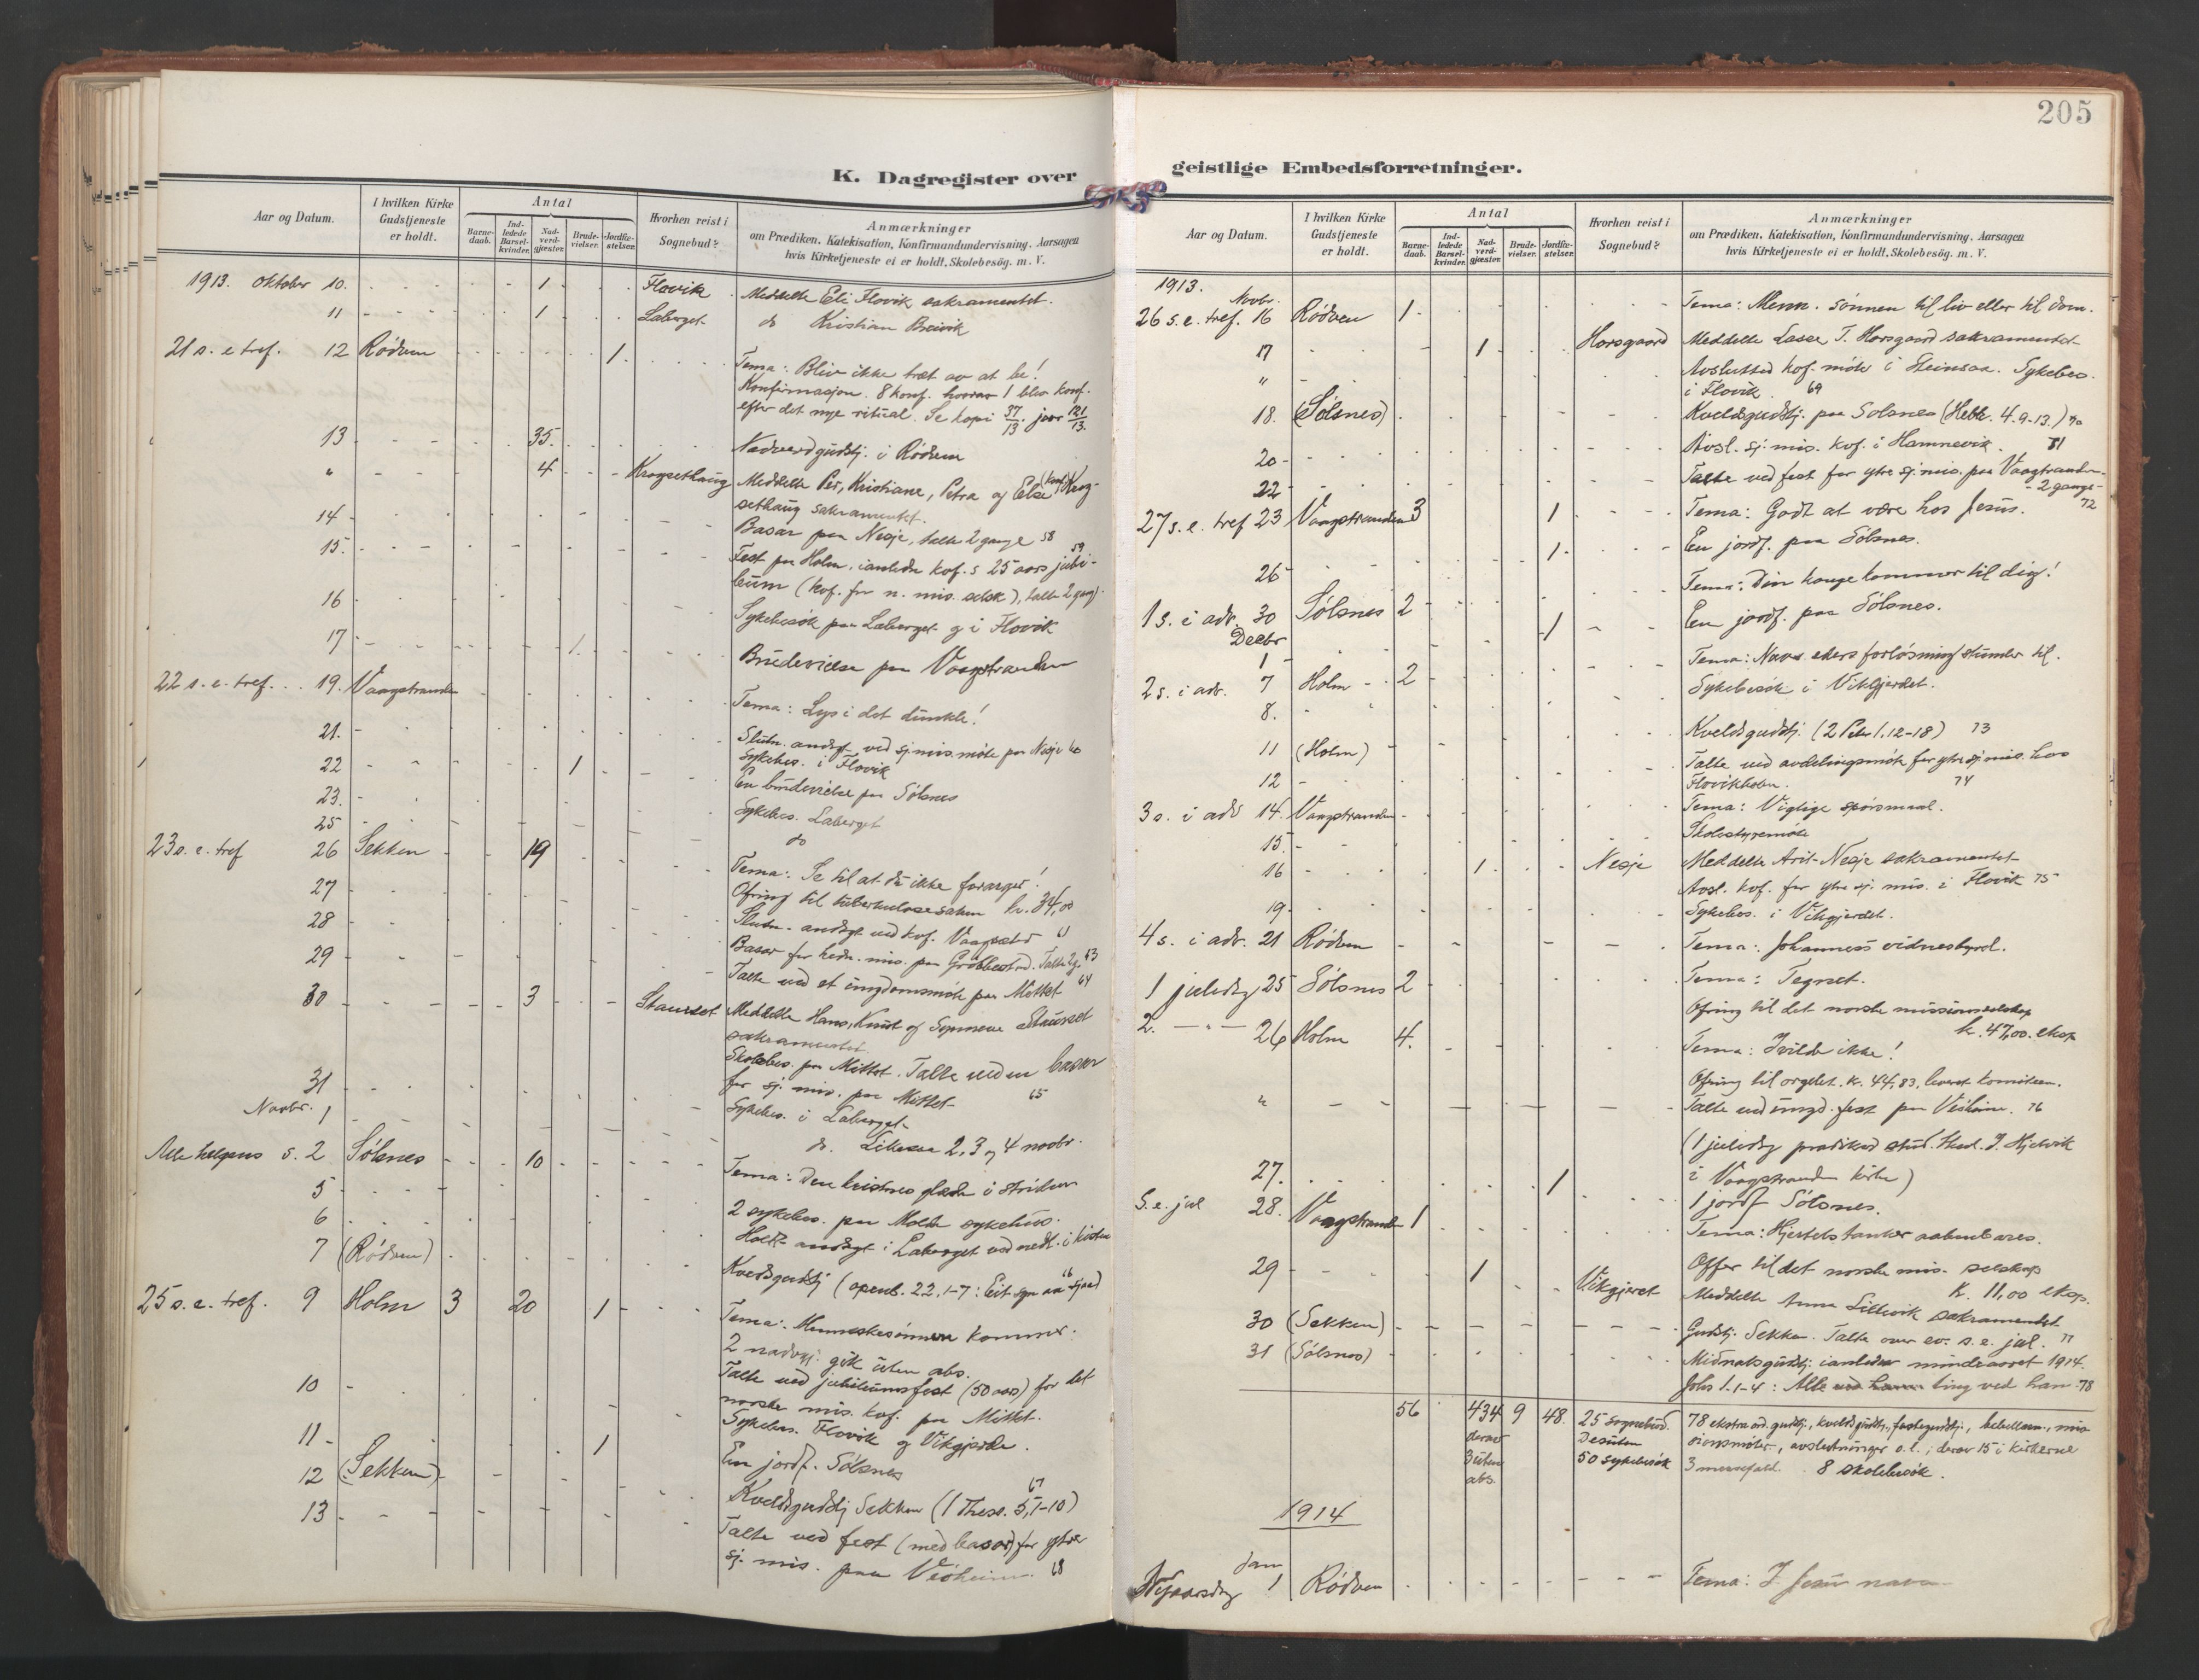 205
K. Dagregister over
Aar og Datum.
I hvilken Kirke Gudstjeneste er holdt.
Antal
Barnedaab.
Indledede Barselkvinder.
Nadverdgjester.
Brudevielser.
Jordfæstelser.
Hvorhen reist i Sognebud?
Anmærkninger
om Prædiken, Katekisation, Konfirmandundervisning, Aarsagen
hvis Kirketjeneste ei er holdt, Skolebesög. m. V.
1913. Oktober 10. 1 Flovik Meddelte Eli Flovik sakramentet.
11 1 Laberget do Kristian Breivik
21 s. e tref. 12 Rödven 1. Tema: Bliv ikke træt av at be!
Konfirmasjon. 8 konf. hvorav 1 blev konf.
efter det nye ritual. Se kopi 37/13. jour 121/13.
13 35. Nadverdgudstj. i Rödven
" 4 Krogsethaug Meddelte Per, Kristiane, Petra og Else Krog-
sethaug sakramentet.
14 Basar paa Nesje, talte 2 gange 58
15. Fest paa Holm, ianledn kof.s 25 aars jubi- 59
leum (kof. for n. mis. selsk), talte 2 gang.
16 Sykebesök paa Laberget og i Flovik
17 1. Brudevielse paa Vaagstranden
22 s. e. tref. 19. Vaagstranden Tema: Lys i det dunkle!
21. Slutn. andagt ved sj. mis. möte paa Nesje 60
22 1 Sykebes. i Flovik
En brudevielse paa Sölsnes
23. Sykebes. Laberget
25 do
23 s. e. tref 26 Sekken 19 Tema: Se til at du ikke forarges!
Ofring til tuberkulosesaken kr. 34,00
27 Slutn. andagt ved kof. Vaagsæter 61
28 Basar for hedn. mis. paa Gröbbestad. Talte 2 g. 63
29 Talte ved et ungdomsmöte paa Mittet 64
30 3 Staurset Meddelte Hans, Knut og Synneve Staurset
sakramentet.
Skolebes. paa Mittet. Talte ved en basar
31 for sj. mis. paa Mittet 65
Novbr. 1 Sykebes. i Laberget
do. Likesaa 2, 3 og 4 novbr.
Alle helgens s. 2 Sölsnes 10 Tema: Den kristnes glæde i striden
5 2 sykebes. paa Molde sykehus.
6 Holdt andagt i Laberget ved nedl. i kisten
7 (Rödven) Kveldsgudstj (openb. 22, 1-7: Eit syn aa sjaa) 66
25 s. e. tref. 9 Holm 3 20 1 Tema: Menneskesönnen kommer.
2 nadvgj. gik uten abs.
10 Talte ved jubileumsfest (50 aars) for det
norske mis. kof. paa Mittet.
Sykebes. Flovik og Vikgjerde.
11 1 En jordf. Sölsnes
12 (Sekken) Kveldsgudstj Sekken (1 Thess. 5, 1-10) 67
13 Talte ved fest (med basar) for ytre
sj. mis. paa Veöheim. 68
geistlige Embedsforretninger.
Aar og Datum.
I hvilken Kirke Gudstjeneste er holdt.
Antal
Barnedaab.
Indledede Barselkvinder.
Nadverdgjester.
Brudevielser.
Jordfæstelser.
Hvorhen reist i Sognebud?
Anmærkninger
om Prædiken, Katekisation, Konfirmandundervisning, Aarsagen
hvis Kirketjeneste ei er holdt, Skolebesög. m. V.
1913.
Novbr.
26 s. e. tref. 16 Rödven 1. Tema: Menn. sönnen til liv eller til dom.
17 1 Horsgaard Meddelte Lasse T. Horsgaard sakramentet
" Avslutted kof. möte i Steinsaa. Sykebes.
i Flovik 69
18. (Sölsnes) Kveldsgudstj. paa Solsnes (Hebr. 4. 9-13.) 70
20 Avsl. sj. mis. kof. i Hamnevik. 71
22 Talte ved fest for ytre sj. mis. paa Vaagstranden
- 2 gange - 72
27 s. e. tref 23 Vaagstranden 3 1 Tema: Godt at være hos Jesus.
26 1 En jordf. paa Sölsnes.
1 s. i adv. 30 Sölsnes 2 Tema: Din konge kommer til dig!
Decbr
1 1 En jordf. paa Sölsnes.
2 s. i adv. 7 Holm 2 Tema: Naar eders forlösning stunder til.
8. Sykebesök i Vikgjerdet.
11 (Holm) Kveldsgudstj. (2 Peter 1. 12-18) 73
12 Talte ved avdelingsmöte for ytre sj. mis. hos
Flovikholm. 74
3 s. i adv 14. Vaagstranden Tema: Vigtige spörsmaal.
15. Skolestyremöte
16 1 Nesje Meddelte Arit Nesje sakramentet
Avsl. kof. for ytre sj. mis. i Flovik 75
19. Sykebes. i Vikgjerdet.
4 s. i adv. 21 Rödven Tema: Johannes's vidnesbyrd.
1 juledag 25 Sölsnes 2 Tema: Tegnet.
Ofring til det norske missionsselskap
k. 47,00. eksp
2. — " — 26 Holm 4. Tema: Tvilde ikke!
Ofring til orgelet. K. 44,83, levert komiteen.
" Talte ved ungd. fest paa Veöheim. 76
(1 juledag prædiked stud. theol. J. Hjelvik
i Vaagstranden kirke)
27. 1 1 jordf Sölsnes.
S. e. jul 28. Vaagstranden 1 Tema: Hjertets tanker aabenbares.
Offer til det norske mis. selskap
K. 11,00 eksp.
29 1 Vikgjerdet Meddelte Anna Lillevik sakramentet
30 (Sekken) Gudstj. Sekken. Talte over ev. s. e. jul. 77
31 (Sölsnes) Midnatsgudstj. ianledn mindeaaret 1914.
Johs 1. 1-4: Alle ting ved ham 78
56 434 9 48. 25 sognebud. 78 ekstraord. gudstj., kveldsgudstj., festgudstj., bibellæsn., mis-
derav Desuten sionsmöter, avslutninger o.l.; derav 15 i kirkerne
3 uten 50 sykebesök 3 messefald. 8 skolebesök.
abs.
1914
Jan
Nyaarsdag 1 Rödven Tema: I Jesu navn